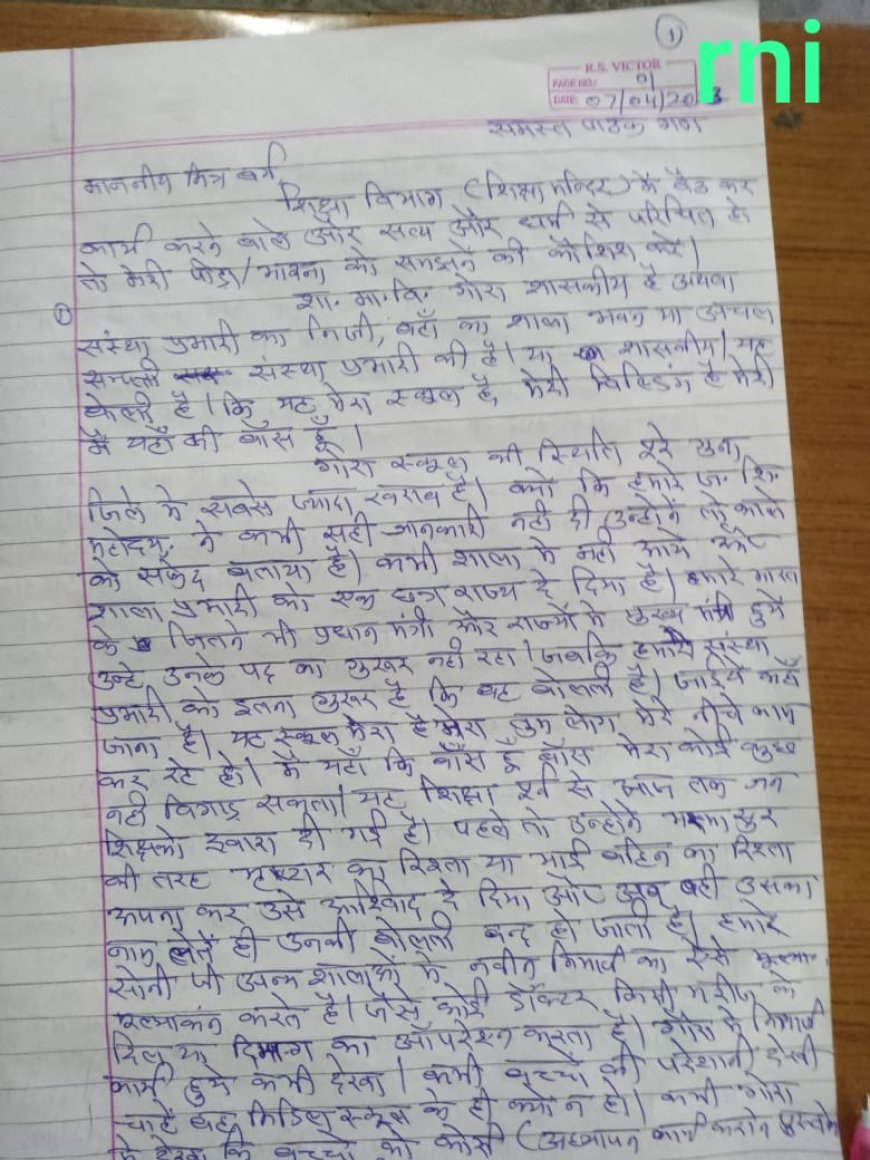 1
rni
R.S. VICTOR
PAGE NO.: 01
DATE: 07/04/2023
समस्त पाठक गण
माननीय मित्र वर्ग,
शिक्षा विभाग (शिक्षा मन्दिर) में बैठ कर
कार्य करने वाले और सत्य और धर्म से परिचित हो
तो मेरी पीड़ा/भावना को समझने की कोशिश करें।
① शा. मा. वि. गोरा शासकीय है अथवा
संस्था प्रभारी का निजी, वहाँ का शाला भवन या अचल
सम्पत्ती संस्था प्रभारी की है। या शासकीय। यह
बोलती है। कि यह मेरा स्कूल है, मेरी बिल्डिंग है मेरी
मैं यहाँ की बॉस हूँ।
गोरा स्कूल की स्थिति पूरे गुना
जिले मे सबसे ज्यादा खराब है। क्यों कि हमारे ज. शि.
महोदय ने कभी सही जानकारी नही दी उन्होने तो काले
को सफेद बताया है। कभी शाला मे नही आये और
शाला प्रभारी को एक छत्र राज्य दे दिया है। हमारे भारत
के जितने भी प्रधान मंत्री और राज्यों मे मुख्य मंत्री हुये
उन्हे उनके पद का गुरूर नही रहा। जबकि हमारी संस्था
प्रभारी को इतना गुरूर है कि वह बोलती है। जाईये कहाँ
जाना है। यह स्कूल मेरा है मेरा तुम लोग मेरे नीचे काम
कर रहे हो। मै यहाँ कि बॉस हूँ बॉस मेरा कोई कुछ
नही बिगाड़ सकता। यह शिक्षा पूर्व से आज तक जन
शिक्षको द्वारा दी गई है। पहले तो उन्होने भस्मासुर
की तरह का रिश्ता या भाई बहिन का रिश्ता
अपना कर उसे आशिर्वाद दे दिया और अब वही उसका
नाम लेते ही उनकी बोलती बन्द हो जाती है। हमारे
सोनी जी अन्य शालाओं मे नवीन निर्माण का ऐसे
मूल्याकंन करते है। जैसे कोई डॉक्टर किसी मरीज के
दिल या दिमाग का ऑपरेशन करता है। गोरा मे निर्माण
कार्य हुये कभी देखा। कभी बच्चो की परेशानी देखी
चाहे वह मिडिल स्कूल के ही क्यो न हो। कभी गोरा
मे देखा कि बच्चो को कोई (अध्यापन कार्य कराने